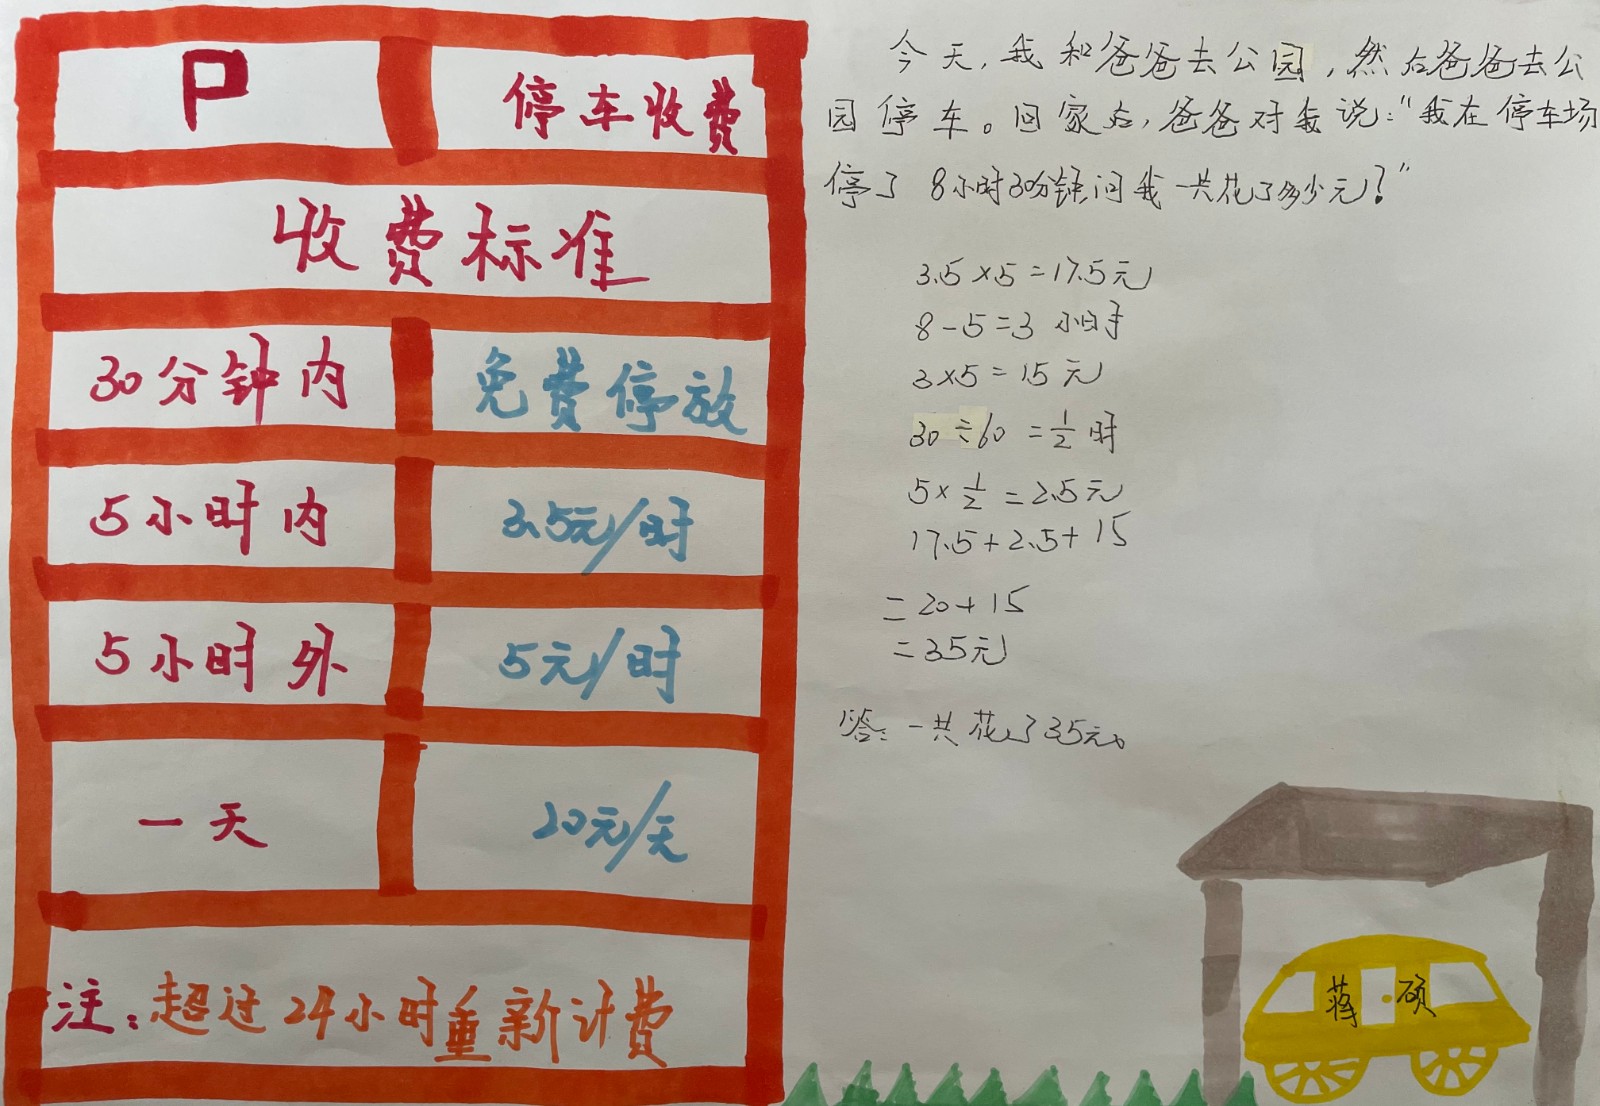 P 停车收费
收费标准
30分钟内 免费停放
5小时内 3.5元/时
5小时外 5元/时
一天 20元/天
注:超过24小时重新计费
今天,我和爸爸去公园,然后爸爸去公
园停车。回家后,爸爸对我说:“我在停车场
停了8小时30分钟,问我一共花了多少元?”
3.5×5=17.5元
8-5=3小时
3×5=15元
30÷60=1/2时
5×1/2=2.5元
17.5+2.5+15
=20+15
=35元
答:一共花了35元。
蒋·硕